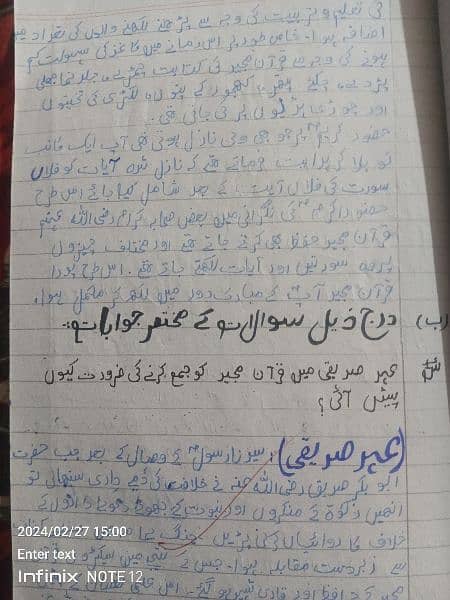 کی تعلیم و تربیت کی وجہ سے پڑھنے لکھنے والوں کی تعداد میں
اضافہ ہوا۔ خاص طور پر اس زمانے میں کاغذ کی سہولت کم
ہونے کی وجہ سے قرآن مجید کی کتابت چمڑے، جلد نما جھلی
پر، پتھر، کھجور کے پتوں، لکڑی کی تختیوں
اور چوڑی ہڈیوں پر کی جاتی تھی۔
حضور کریمؐ پر جو بھی وحی نازل ہوتی تھی آپ ایک کاتب
کو بلا کر ہدایت فرماتے تھے کہ نازل شدہ آیات کو فلاں
سورت کی فلاں آیت کے بعد شامل کیا جائے اس طرح
حضور اکرمؐ کی نگرانی میں بعض صحابہ کرام رضی اللہ عنہم
قرآن مجید حفظ بھی کرتے جاتے تھے اور مختلف چیزوں
پر سورتیں اور آیات لکھتے جاتے تھے۔ اس طرح پورا
قرآن مجید آپؐ کے مبارک دور میں لکھ کر مکمل ہوا۔
(ب) درج ذیل سوالات کے مختصر جوابات:
عہد صدیقی میں قرآن مجید کو جمع کرنے کی ضرورت کیوں
پیش آئی؟
(عہد صدیقی) کے وصال کے بعد جب حضرت
ابو بکر صدیق رضی اللہ عنہ نے خلافت کی ذمے داری سنبھالی تو
انھیں زکوٰۃ کے منکروں اور نبوت کے جھوٹے دعوے داروں کے
خلاف کاروائیاں کرنی پڑیں۔ جنگ
سے زبردست مقابلہ ہوا۔ جس کے میں
2024/02/27 15:00
Enter text
Infinix NOTE 12